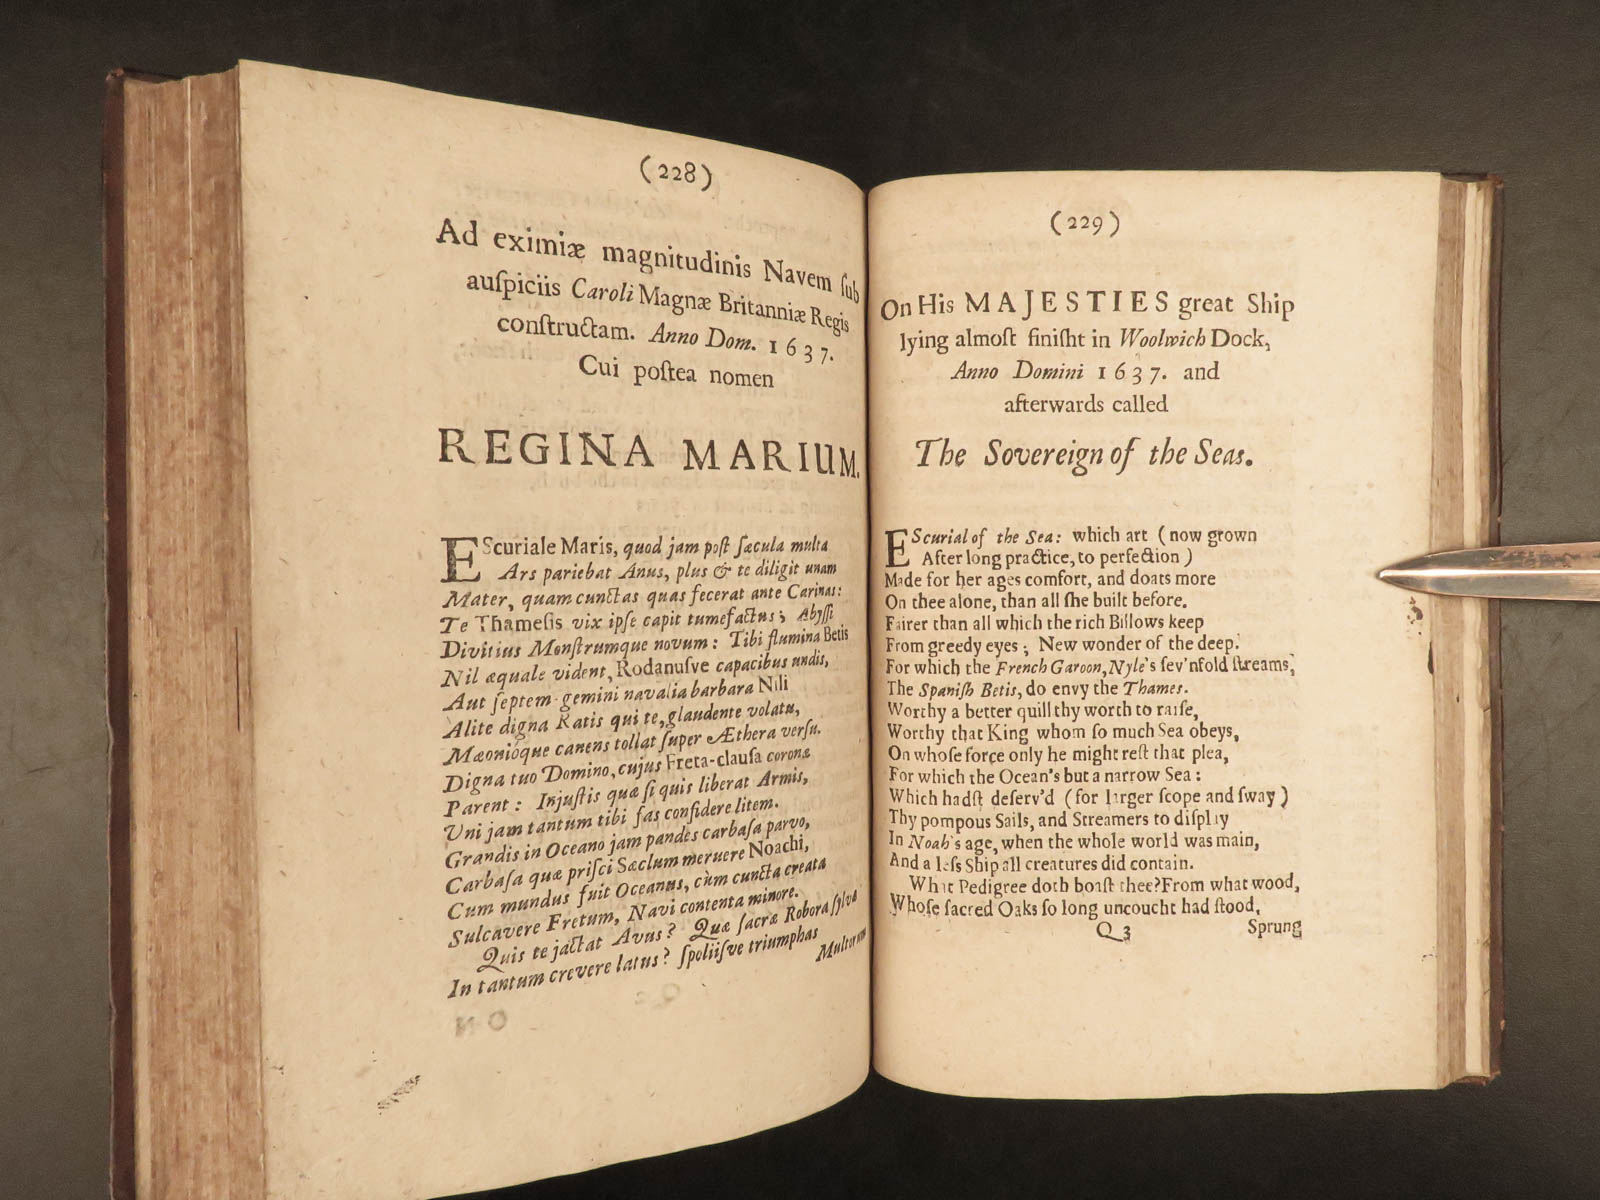 (228)
Ad eximiæ magnitudinis Navem ſub
auſpiciis Caroli Magnæ Britanniæ Regis
conſtructam. Anno Dom. 1637.
Cui poſtea nomen
REGINA MARIUM.
EScuriale Maris, quod jam poſt ſæcula multa
Ars pariebat Anus, plus & te diligit unam
Mater, quam cunctas quas fecerat ante Carinas:
Te Thameſis vix ipſe capit tumefactus; Abyſſi
Divitius Monſtrumque novum: Tibi flumina Betis
Nil æquale vident, Rodanuſve capacibus undis,
Aut ſeptem-gemini navalia barbara Nili
Alite digna Ratis qui te, glaudente volatu,
Mæonióque canens tollat ſuper Æthera verſu.
Digna tuo Domino, cujus Freta-clauſa coronæ
Parent: Injuſtis quæ ſi quis liberat Armis,
Uni jam tantum tibi fas confidere litem.
Grandis in Oceano jam pandes carbaſa parvo,
Carbaſa quæ priſci Sæclum meruere Noachi,
Cum mundus fuit Oceanus, cùm cuncta creata
Sulcavere Fretum, Navi contenta minore.
Quis te jactat Avus? Quæ ſacræ Robora ſylvæ
In tantum crevere latus? ſpoliiſve triumphas
(229)
On His MAJESTIES great Ship
lying almoſt finiſht in Woolwich Dock,
Anno Domini 1637. and
afterwards called
The Sovereign of the Seas.
EScurial of the Sea: which art (now grown
After long practice, to perfection)
Made for her ages comfort, and doats more
On thee alone, than all ſhe built before.
Fairer than all which the rich Billows keep
From greedy eyes; New wonder of the deep.
For which the French Garoon, Nyle's ſev'nfold ſtreams,
The Spaniſh Betis, do envy the Thames.
Worthy a better quill thy worth to raiſe,
Worthy that King whom ſo much Sea obeys,
On whoſe force only he might reſt that plea,
For which the Ocean's but a narrow Sea:
Which hadſt deſerv'd (for larger ſcope and ſway)
Thy pompous Sails, and Streamers to diſplay
In Noah's age, when the whole world was main,
And a leſs Ship all creatures did contain.
What Pedigree doth boaſt thee? From what wood,
Whoſe ſacred Oaks ſo long uncoucht had ſtood,
Q3 Sprung